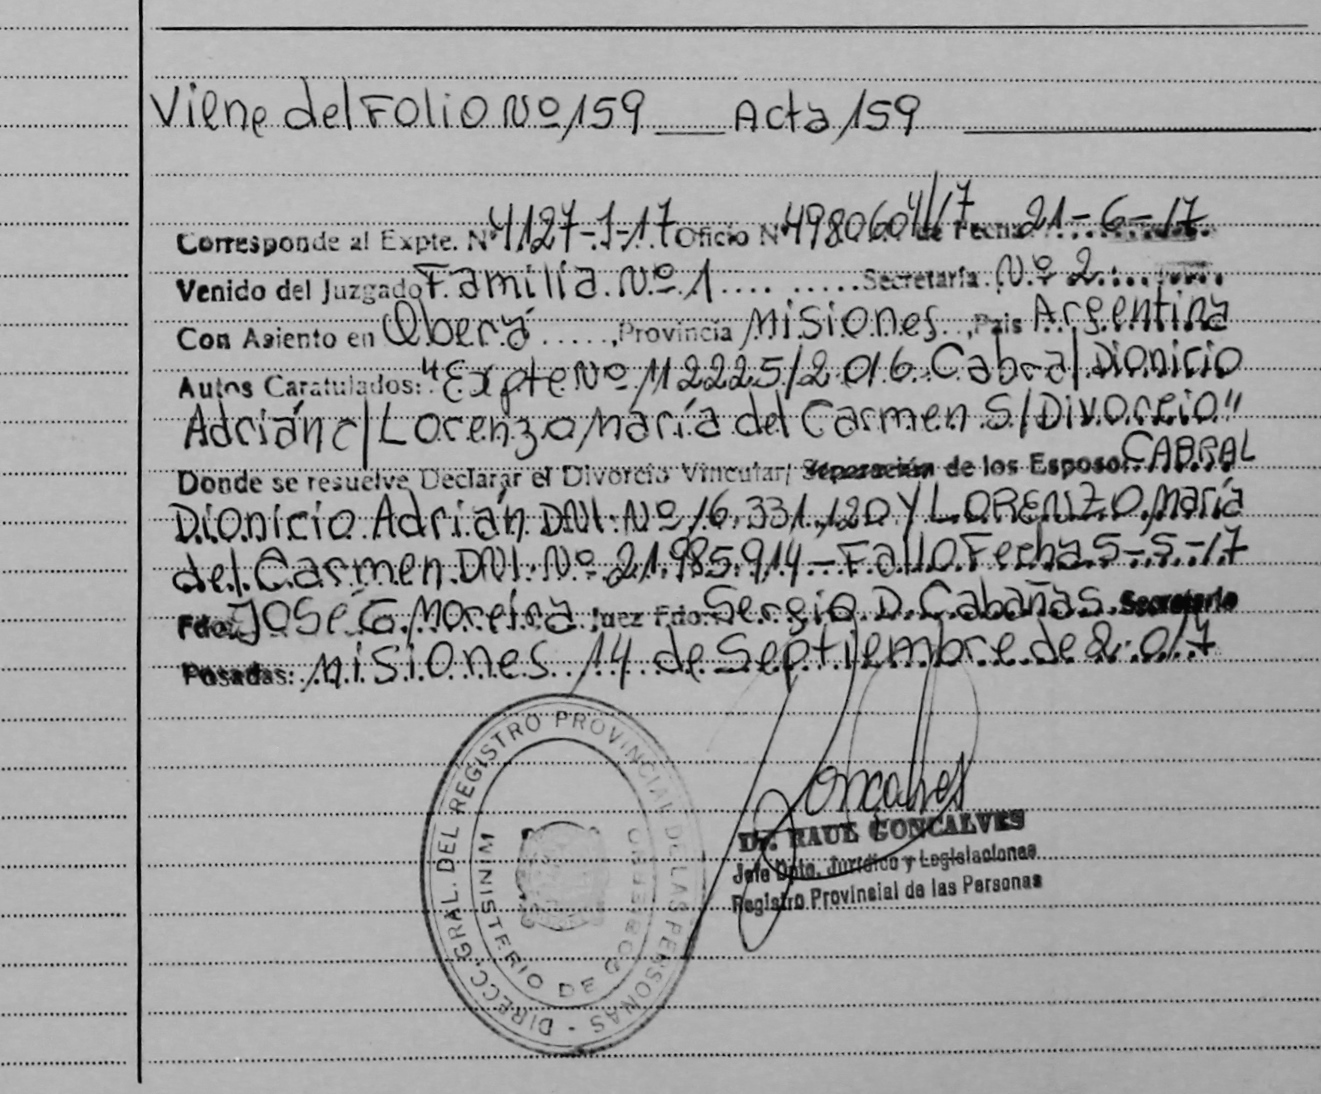 Viene del Folio Nº 159 ___ Acta 159
Corresponde al Expte. Nº 4127-J-17 Oficio Nº 4980604/17 de Fecha 21-6-17.
Venido del Juzgado Familia Nº 1 .... ..... Secretaría Nº 2
Con Asiento en Oberá ....., Provincia Misiones, Pais Argentina
Autos Caratulados: "Expte Nº 112225/2016 Cabral Dionicio
Adrián c/ Lorenzo María del Carmen S/Divorcio"
Donde se resuelve Declarar el Divorcio Vincular/ Separación de los Esposos CABRAL
Dionicio Adrián DNI. Nº 16.331.120 Y LORENZO María
del Carmen DNI. Nº 21.985.914 - Fallo Fecha 5-5-17
Fdo. José G. Moreira Juez Fdo: Sergio D. Cabañas Secretario
Posadas: Misiones 14 de Septiembre de 2.017
DIRECC. GRAL. DEL REGISTRO PROVINCIAL DE LAS PERSONAS -
MINISTERIO DE GOBIERNO
Goncalves
Dr. RAUL GONCALVES
Jefe Dpto. Jurídico y Legislaciones
Registro Provincial de las Personas